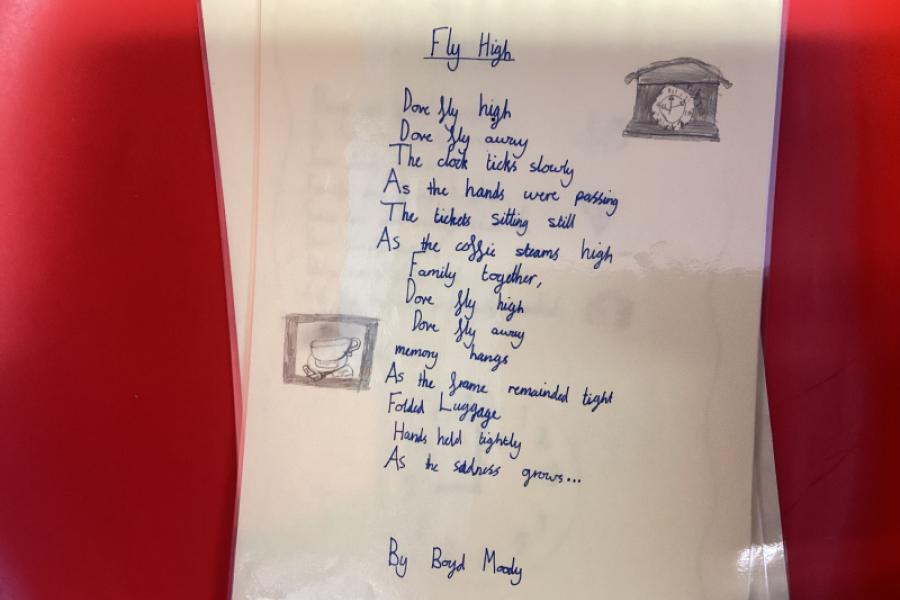 Fly High
Dove fly high
Dove fly away
The clock ticks slowly
As the hands were passing
The tickets sitting still
As the coffie steams high
Family together,
Dove fly high
Dove fly away
memory hangs
As the frame remainded tight
Folded Luggage
Hands held tightly
As the sadness grows...
By Boyd Moody